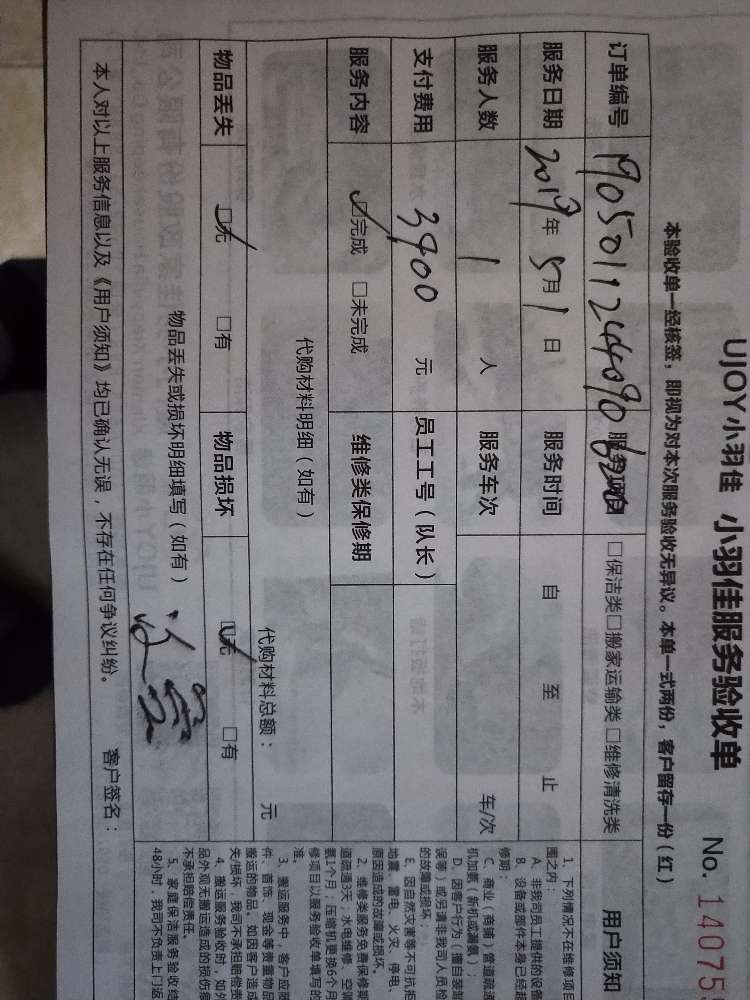 UJOY小羽佳 小羽佳服务验收单
No. 14075
本验收单一经核签，即视为对本次服务验收无异议。本单一式两份，客户留存一份（红）
订单编号 服务项目 □保洁类□搬家运输类□维修清洗类 用户须知
服务日期 2019年5月1日 服务时间 自 至 止
服务人数 1 人 服务车次 车/次
支付费用 3900 元 员工工号（队长）
服务内容 ☑完成 □未完成 维修类保修期
代购材料明细（如有） 代购材料总额： 元
物品丢失 ☑无 □有 物品损坏 ☑无 □有
物品丢失或损坏明细填写（如有）
本人对以上服务信息以及《用户须知》均已确认无误，不存在任何争议纠纷。 客户签名：
1、下列情况不在维修项
围之内：
A、非我司员工提供的设备
B、设备或部件本身已经超
修期；
C、商业（商铺）管道疏通
机加氨（新机或漏氨）；
D、因客户行为（擅自装卸
误等）或另请非我司人员检
的故障或损坏；
E、因自然灾害等不可抗拒
地震、雷电、火灾、停电、
原因造成的故障或损坏。
2、维修类服务免费保修期
道疏通3天；水电维修、空调
氨1个月；压缩机更换6个月
修项目以服务验收单填写的
准。
3、搬运服务中，客户应
件、首饰、现金等贵重物品
搬运的物品。如因客户造成
失/损坏，我司不承担赔偿责
4、搬运服务验收时，如外
品外观无搬运造成的损伤痕
不承担赔偿责任。
5、家庭保洁服务验收结
48小时，我司不负责上门返